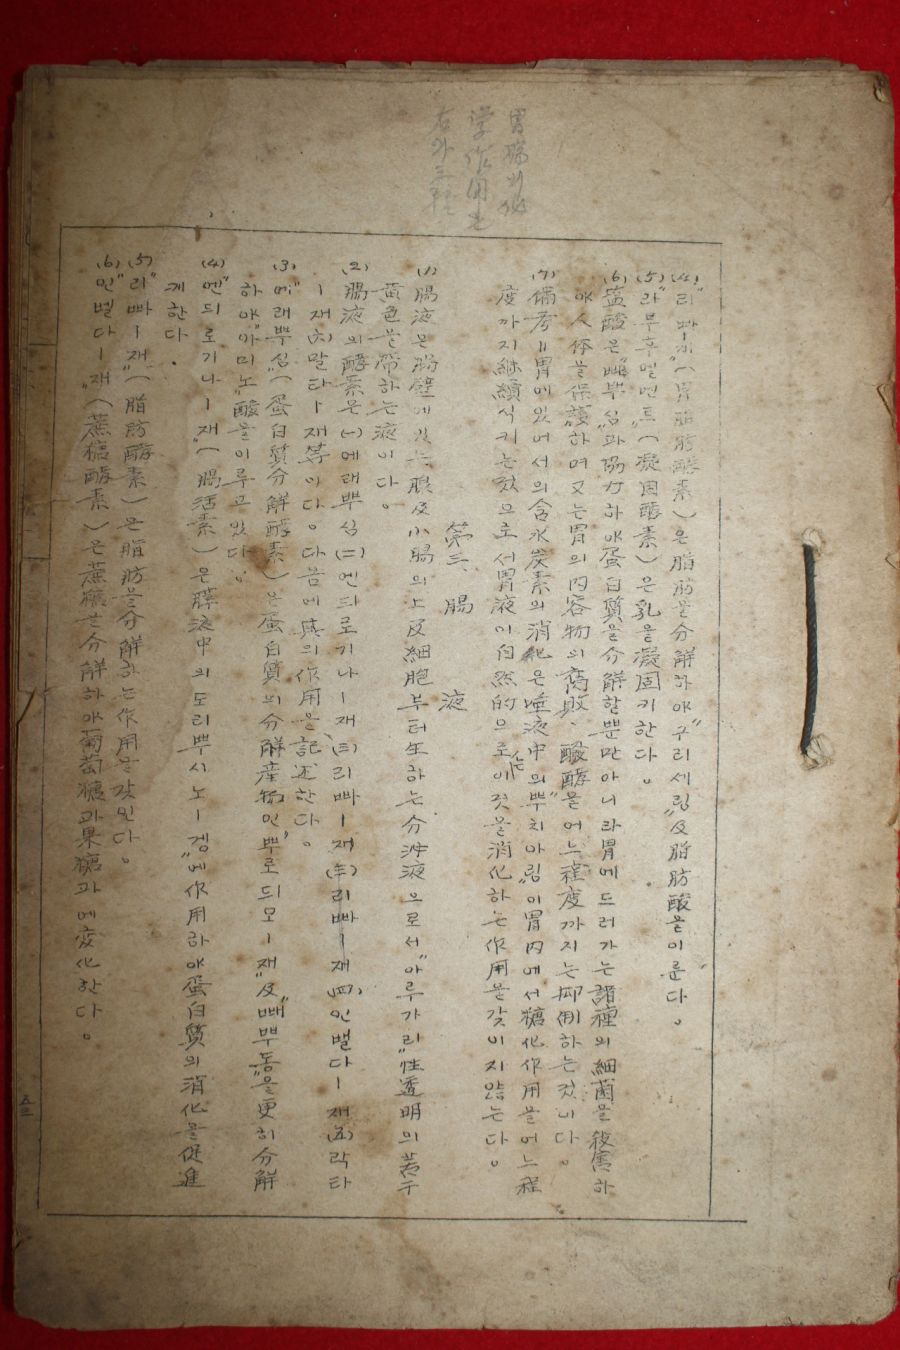 胃腸의化
学作用은
右와三種
(4) "리빠—제"(胃脂肪酵素)은脂肪을分解하야"구리세링"及脂肪酸을이룬다。
(5) "라"부후멜먼트"(凝固酵素)은乳을凝固키한다。
(6) 塩酸은"뻬뿌싱"과協力하야蛋白質을分解할뿐만아니라胃에드러가는諸種의細菌을殺害하
야人体을保護하며又는胃의內容物의腐敗、醱酵을어느程度까지는抑制하는것이다。
(7) 備考‖胃에있어서의含水炭素의消化은唾液中의"뿌치아링"이胃內에서糖化作用을어느程
度까지継續식키는것으로서胃液이自然的으로는이것을消化하는作用을갖이지않는다。
第三 腸 液
(1) 腸液은腸壁에있는腺及小腸의上皮細胞부터生하는分泌液으로서"아루가리"性透明의苦干
黃色을帶하는液이다。
(2) 腸液의酵素은(一)에래뿌싱(二)엔틔로기나—재(三)리빠—재(四)인벨다—재(五)락타
—재(六)말타—재等이다。다음에其의作用을記述한다。
(3) "에래뿌싱"(蛋白質分解酵素)은蛋白質의分解産物인"뿌로듸모—재"及"뻬뿌동"을更히分解
하야"아미노"酸을이루고있다。
(4) "엔듸로기나—재"(腸活素)은膵液中의도리뿌시노—겡"에作用하야蛋白質의消化을促進
케한다。
(5) "리빠—재"(脂肪酵素)은脂肪을分解하는作用을갖인다。
(6) "인벨다—재"(蔗糖酵素)은蔗糖을分解하야葡萄糖과果糖과에変化한다。